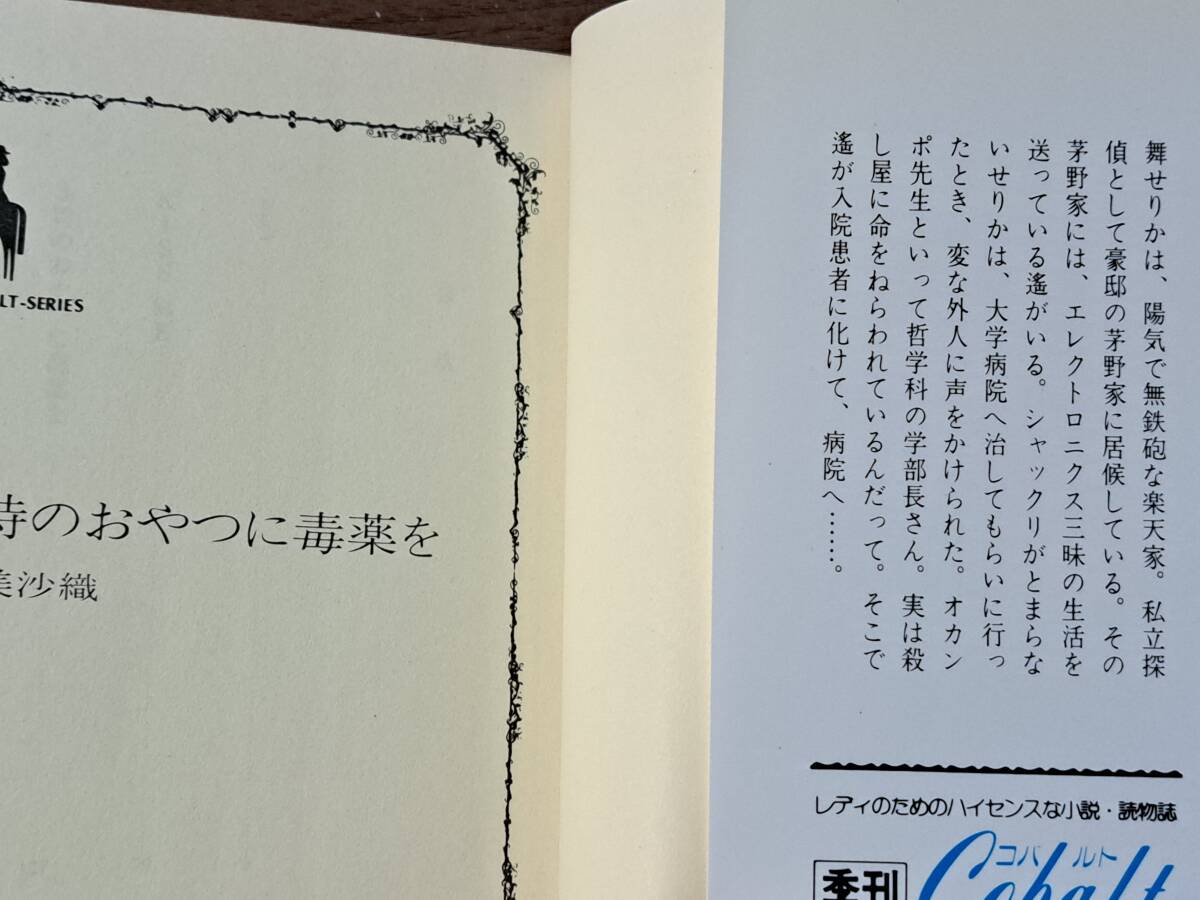 舞せりかは、陽気で無鉄砲な楽天家。私立探
偵として豪邸の茅野家に居候している。その
茅野家には、エレクトロニクス三昧の生活を
送っている遙がいる。シャックリがとまらな
いせりかは、大学病院へ治してもらいに行っ
たとき、変な外人に声をかけられた。オカン
ポ先生といって哲学科の学部長さん。実は殺
し屋に命をねらわれているんだって。そこで
遙が入院患者に化けて、病院へ……。
レディのためのハイセンスな小説・読物誌
季刊
コバルト
Cobalt
LT-SERIES
時のおやつに毒薬を
美沙織